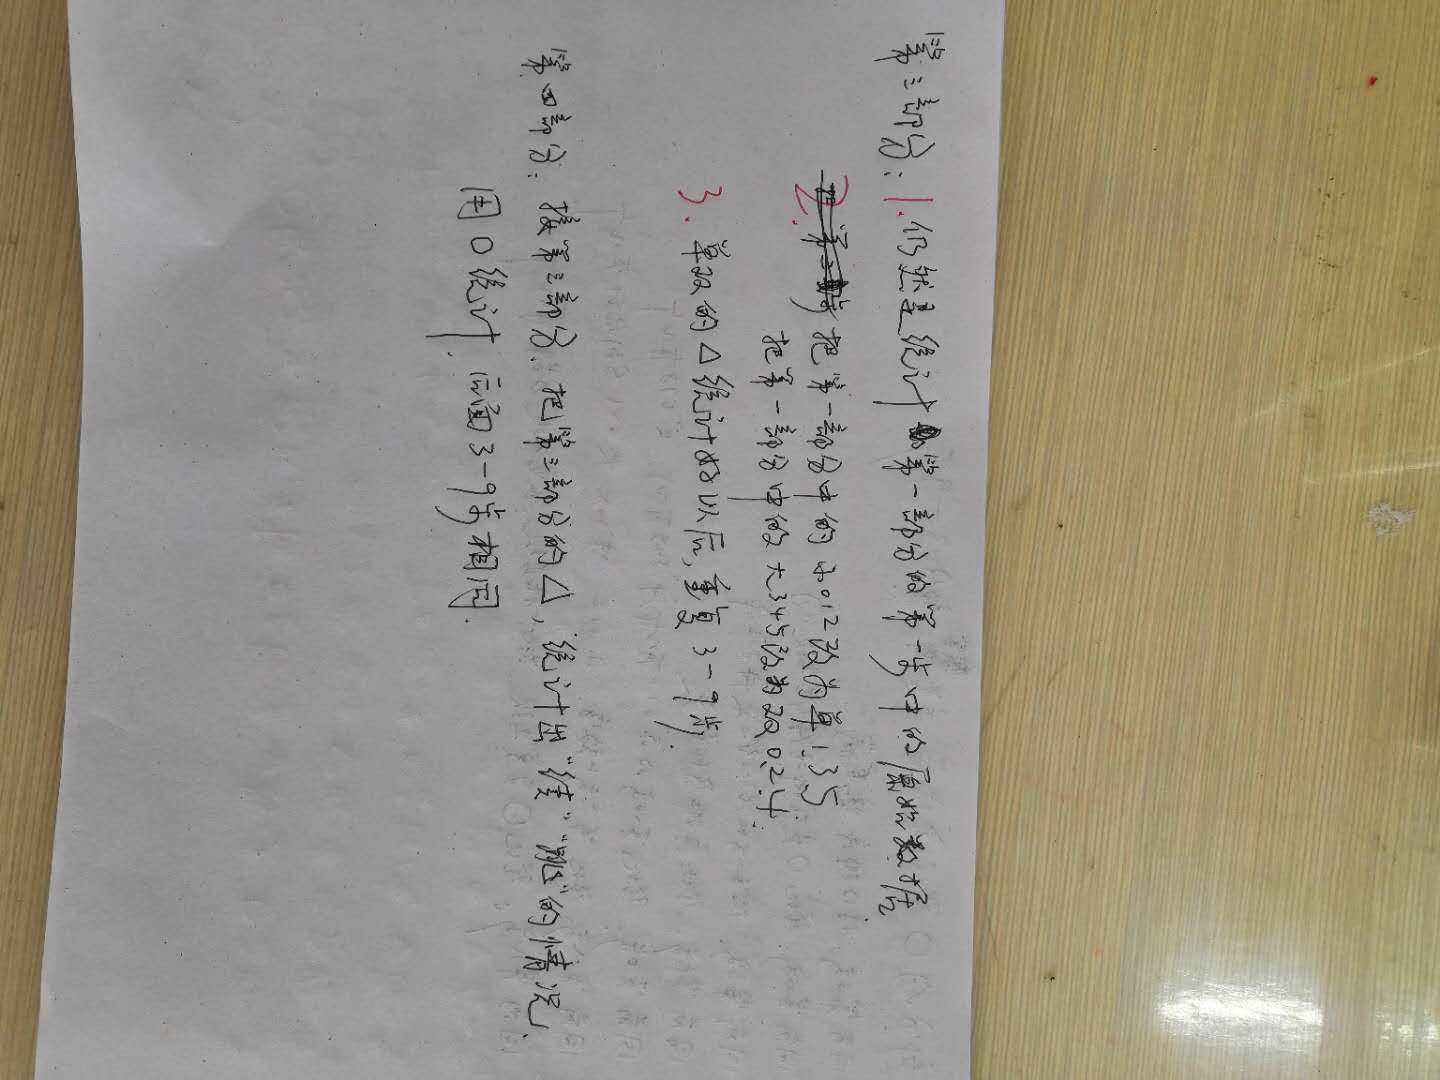 第三部分：1.仍然是统计第一部分的第一步中的原始数据
2.把第一部分中的小012改为单1.3.5
把第一部分中的大345改为双0.2.4.
3.单双的△统计好以后，重复3-9步.
第四部分：接第三部分.把第三部分的△，统计出“续”“跳”的情况.
用O统计.后面3-9步相同.